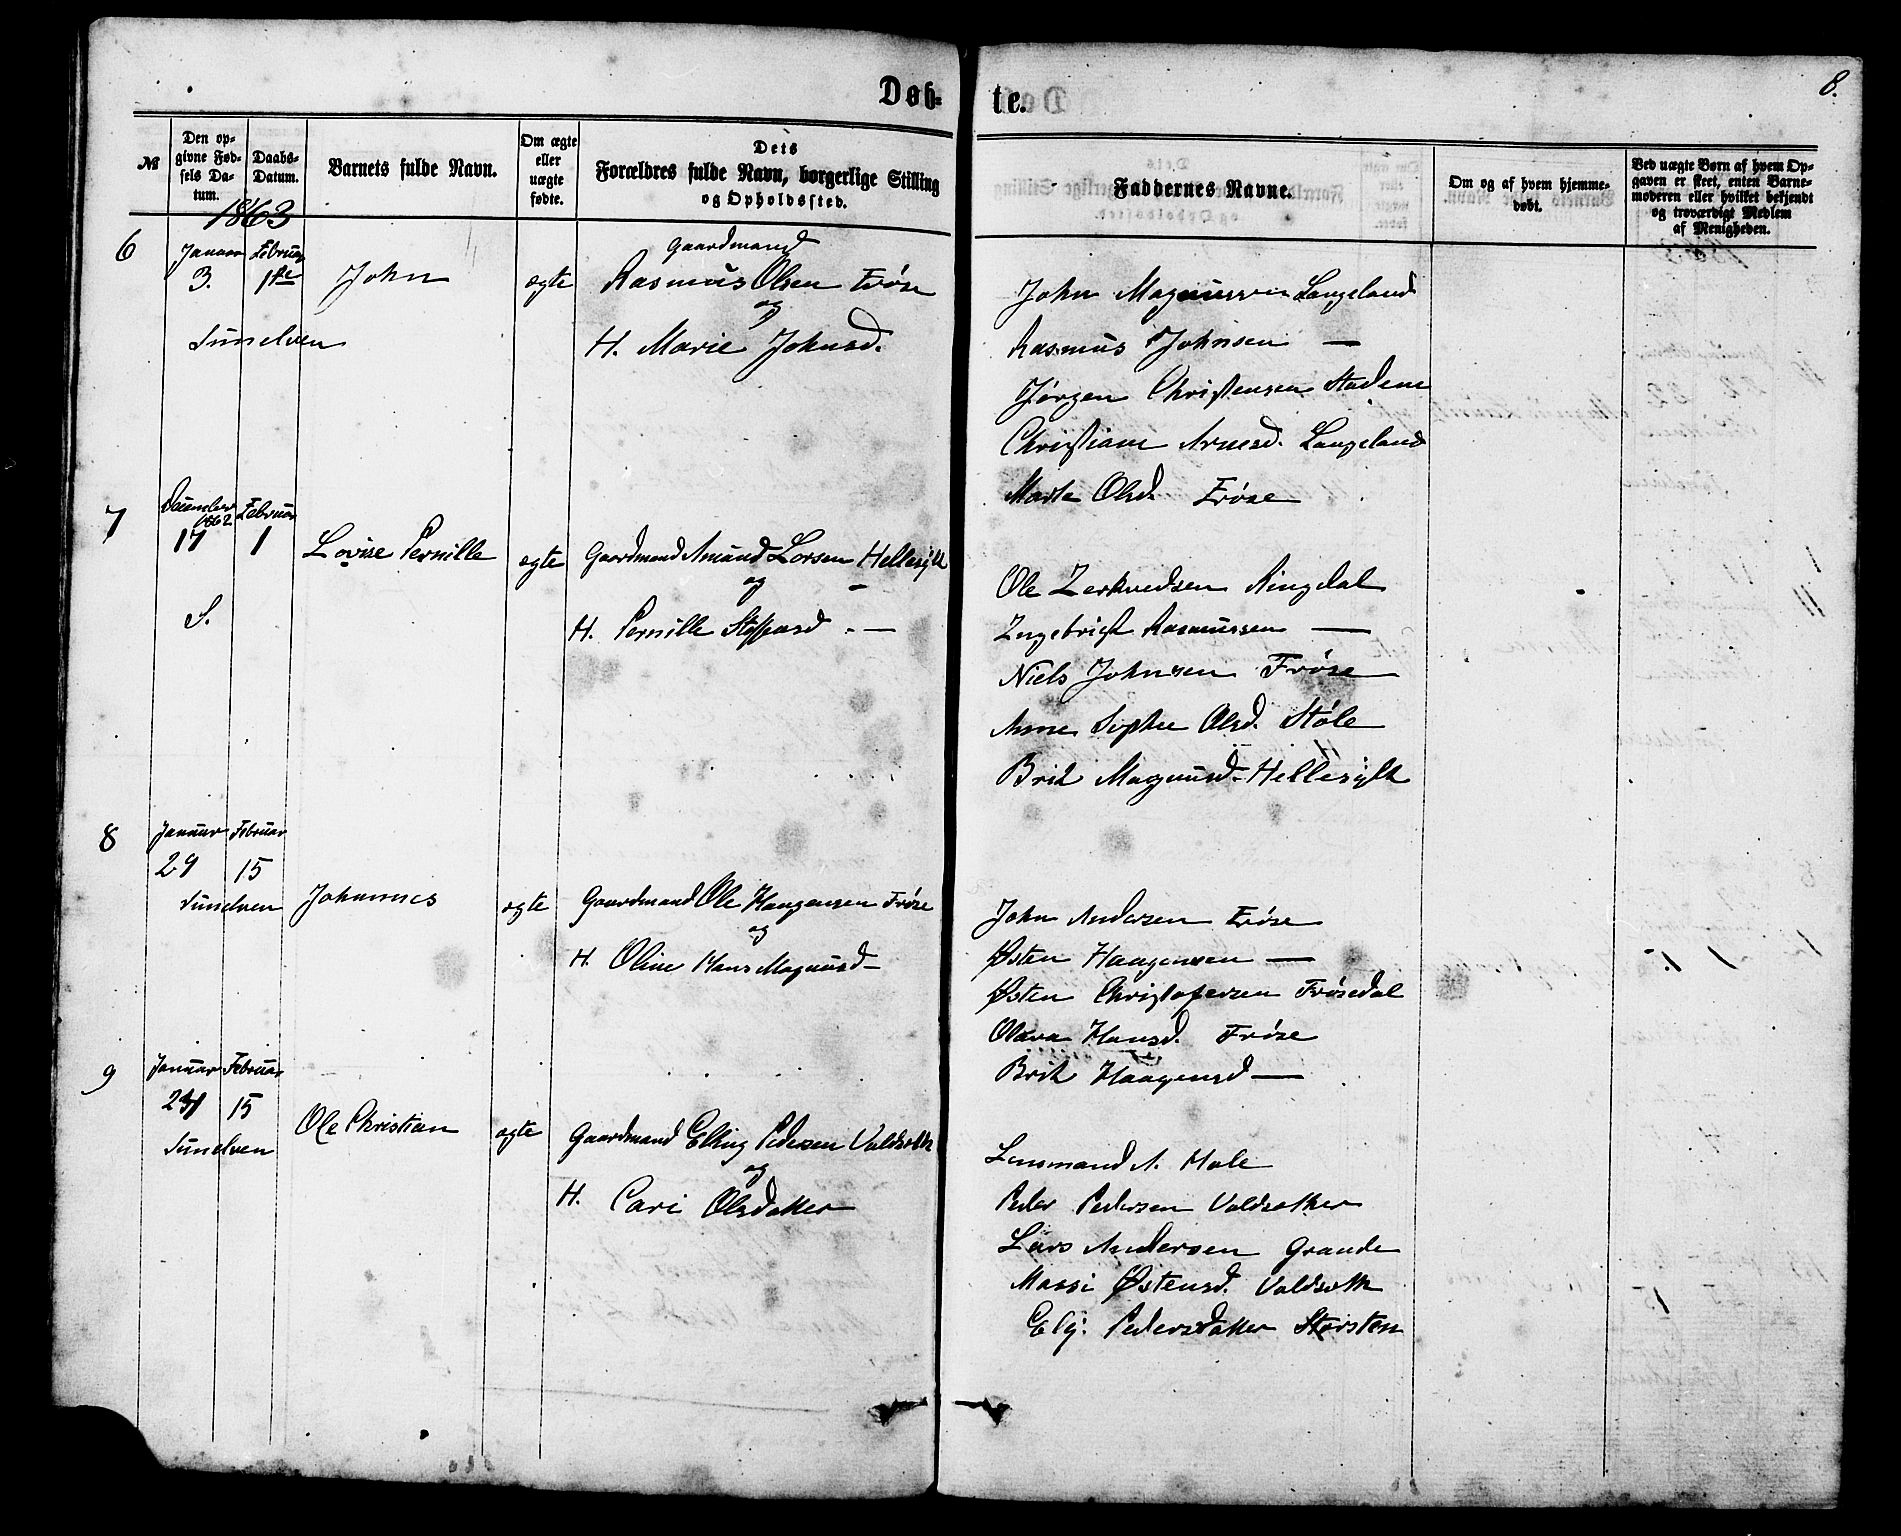 Døb-
te.
8.
№
Den op-
givne Fød-
sels Da-
tum.
Daabs-
Datum.
Barnets fulde Navn.
Om ægte
eller
uægte
fødte.
Dets
Forældres fulde Navn, borgerlige Stilling
og Opholdssted.
Faddernes Navne.
Om og af hvem hjemme-
døbt.
Ved uægte Børn af hvem Op-
gaven er skeet, enten Barne-
moderen eller hvilket bekjendt
og troværdigt Medlem
af Menigheden.
1863
6
Januar
3.
Februar
1ste
Sunelven
John
ægte
Gaardmand
Rasmus Olsen Frøse
og
H. Marie Johnsd.
John Magnussen Langeland
Rasmus Johnsen —
Jørgen Christensen Stadem
Christiane Arnesd. Langeland
Marte Olsd. Frøse
7
December
1862
17
Februar
1
S.
Lovise Pernille
ægte
Gaardmand Amund Larsen Hellesylt
og
H. Pernille Steffensd. —
Ole Zerkvedsen Ringdal
Ingebrigt Rasmussen —
Niels Johnsen Frøse
Anne Sophie Olsd. Støle
Brit Magnusd. Hellesylt
8
Januar
29
Februar
15
Sunelven
Johannes
ægte
Gaardmand Ole Haagensen Frøse
og
H. Oline Hans Magnusd —
John Andersen Frøse
Østen Haagensen —
Østen Christofersen Frøsedal
Olava Hansd. Frøse
Brit Haagensd —
9
Januar
Februar
15
Sunelven
Ole Christian
ægte
Gaardmand Elling Pedersen
og
H. Cari Olsdatter
Lensmand A. Hole
Peder Pedersen
Lars Andersen Grande
Massi Østensd.
Elij. Pedersdatter